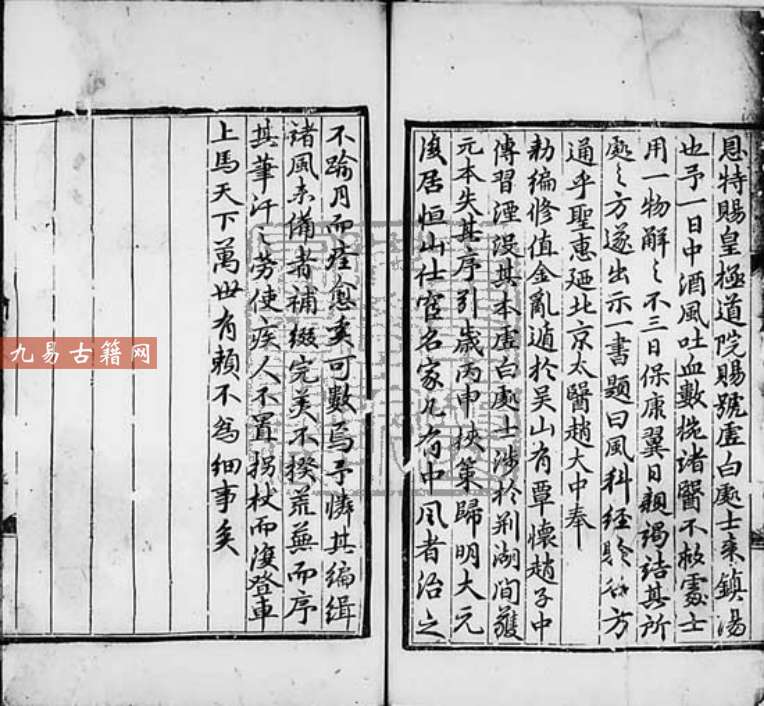 恩特賜皇極道院賜號虛白處士來鎮湯
也予一日中酒風吐血數椀諸醫不救處士
用一物解之不三日保康翼日親謁詰其所
處之方遂出示一書題曰風科經驗名方
通乎聖惠廼北京太醫趙大中奉
勅編修值金亂遁於吳山有覃懷趙子中
傳習湮沒其本虛白處士涉於荆湖間獲
元本失其序引歲丙申挾策歸明大元
後居恒山仕宦名家凡有中風者治之
不踰月而痊愈矣可數焉予憐其編緝
諸風未備者補綴完美不揆荒蕪而序
其筆汗之勞使疾人不置拐杖而復登車
上馬天下萬世有賴不爲細事矣
九易古籍网